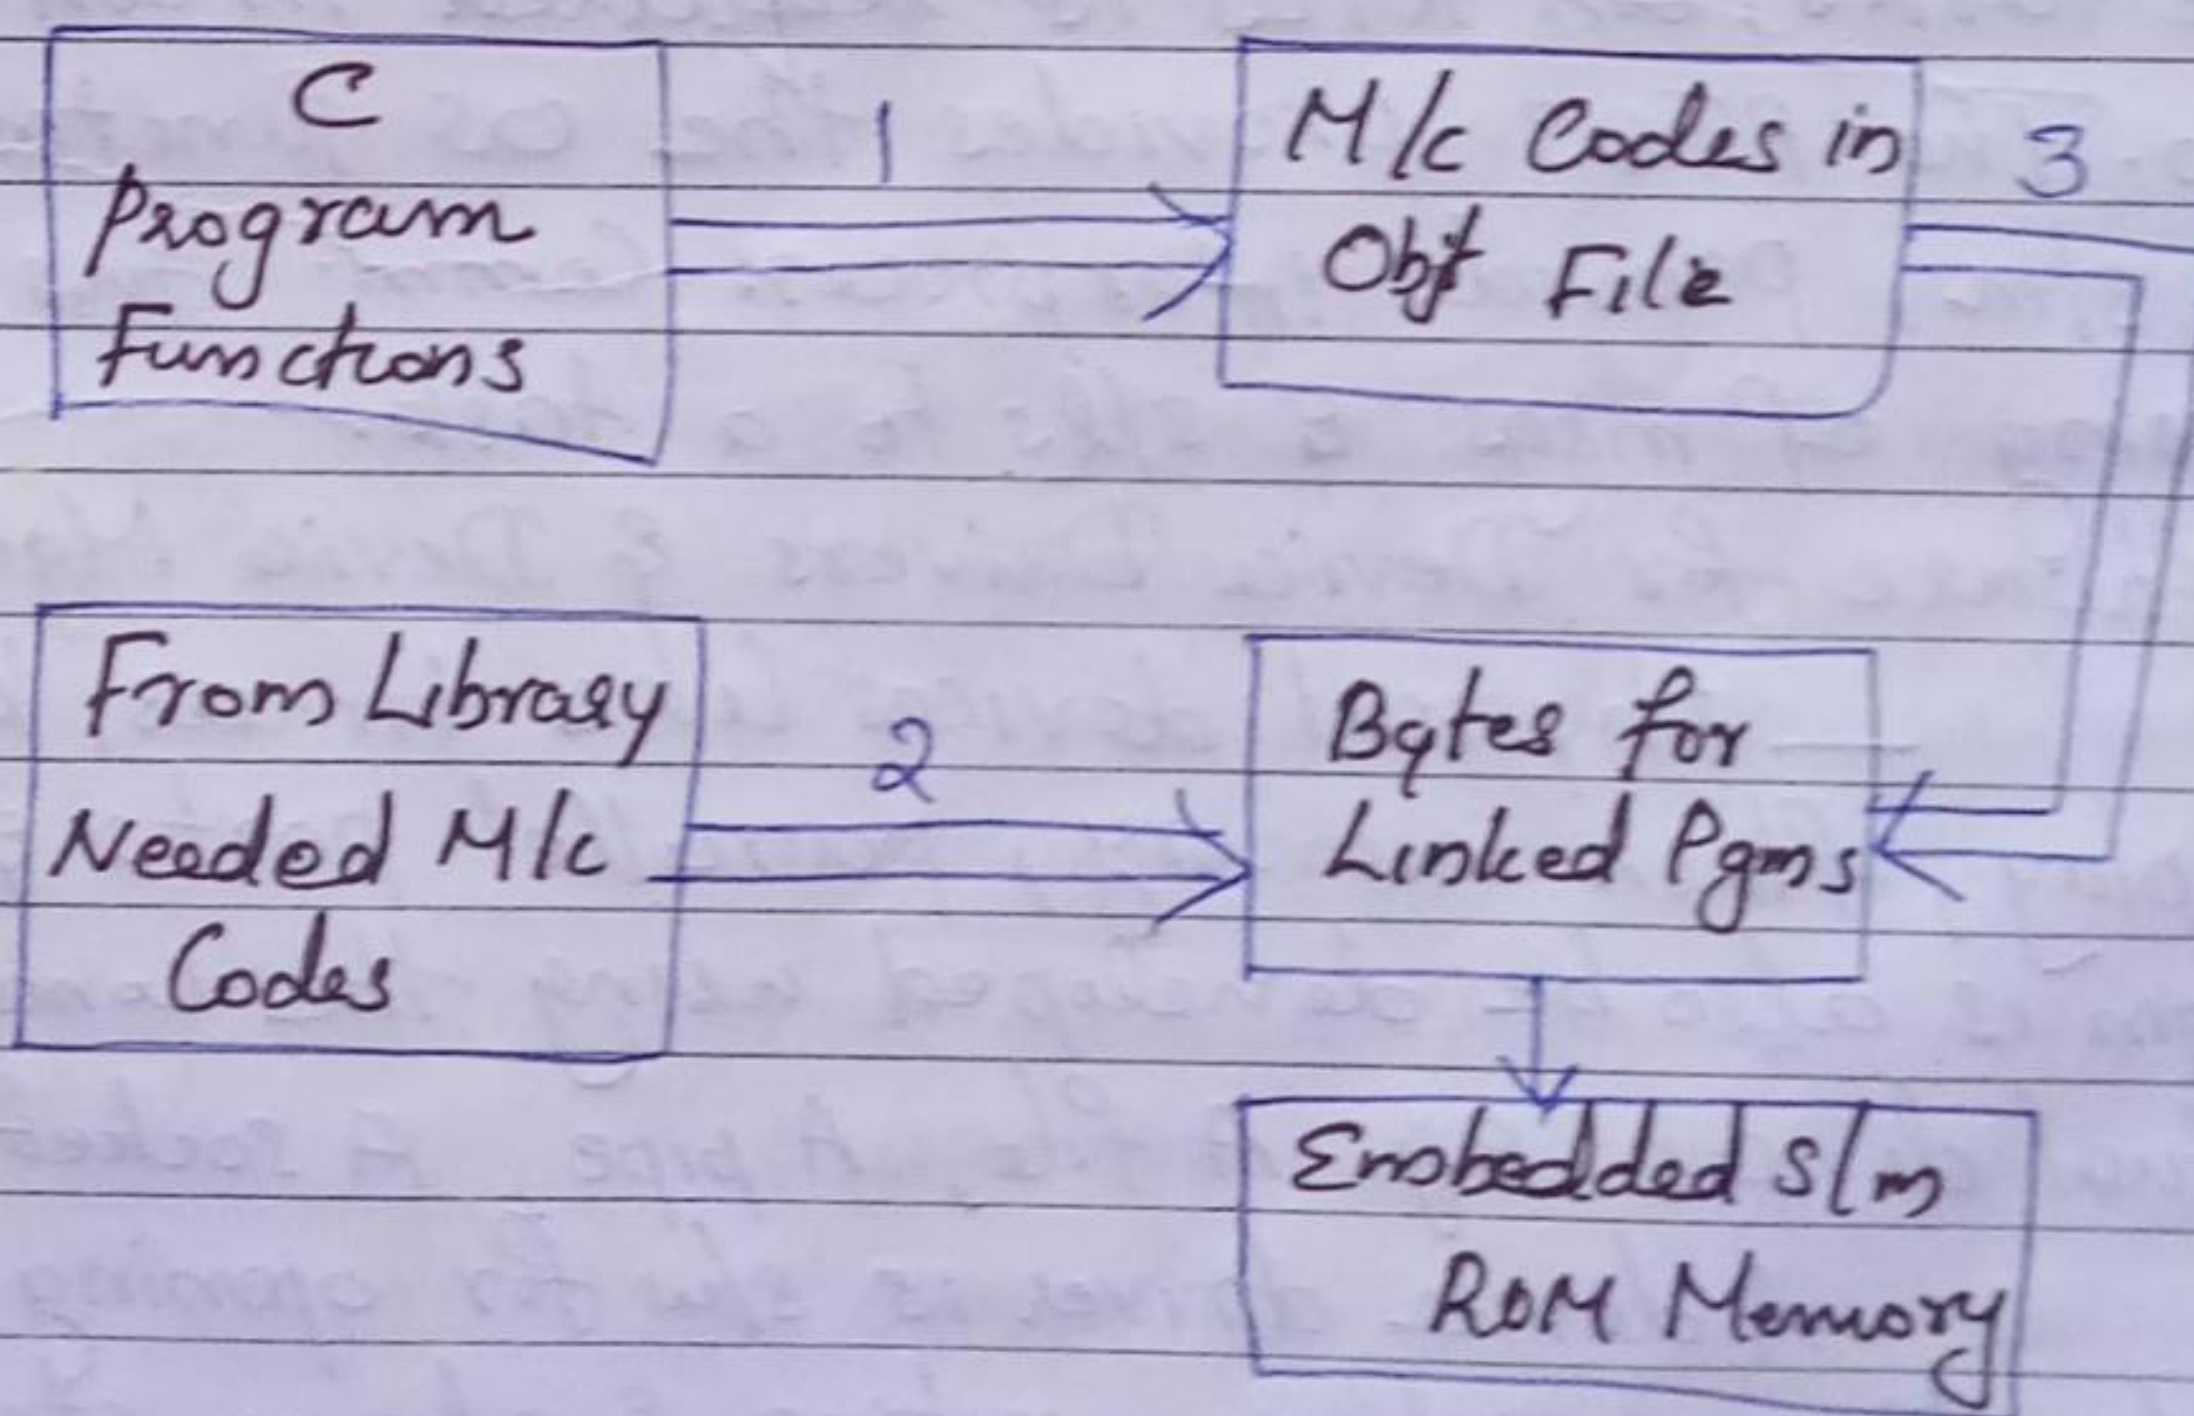 C
Program
Functions
1
M/c Codes in
Obj File
3
From Library
Needed M/c
Codes
2
Bytes for
Linked Pgms
Embedded s/m
ROM Memory